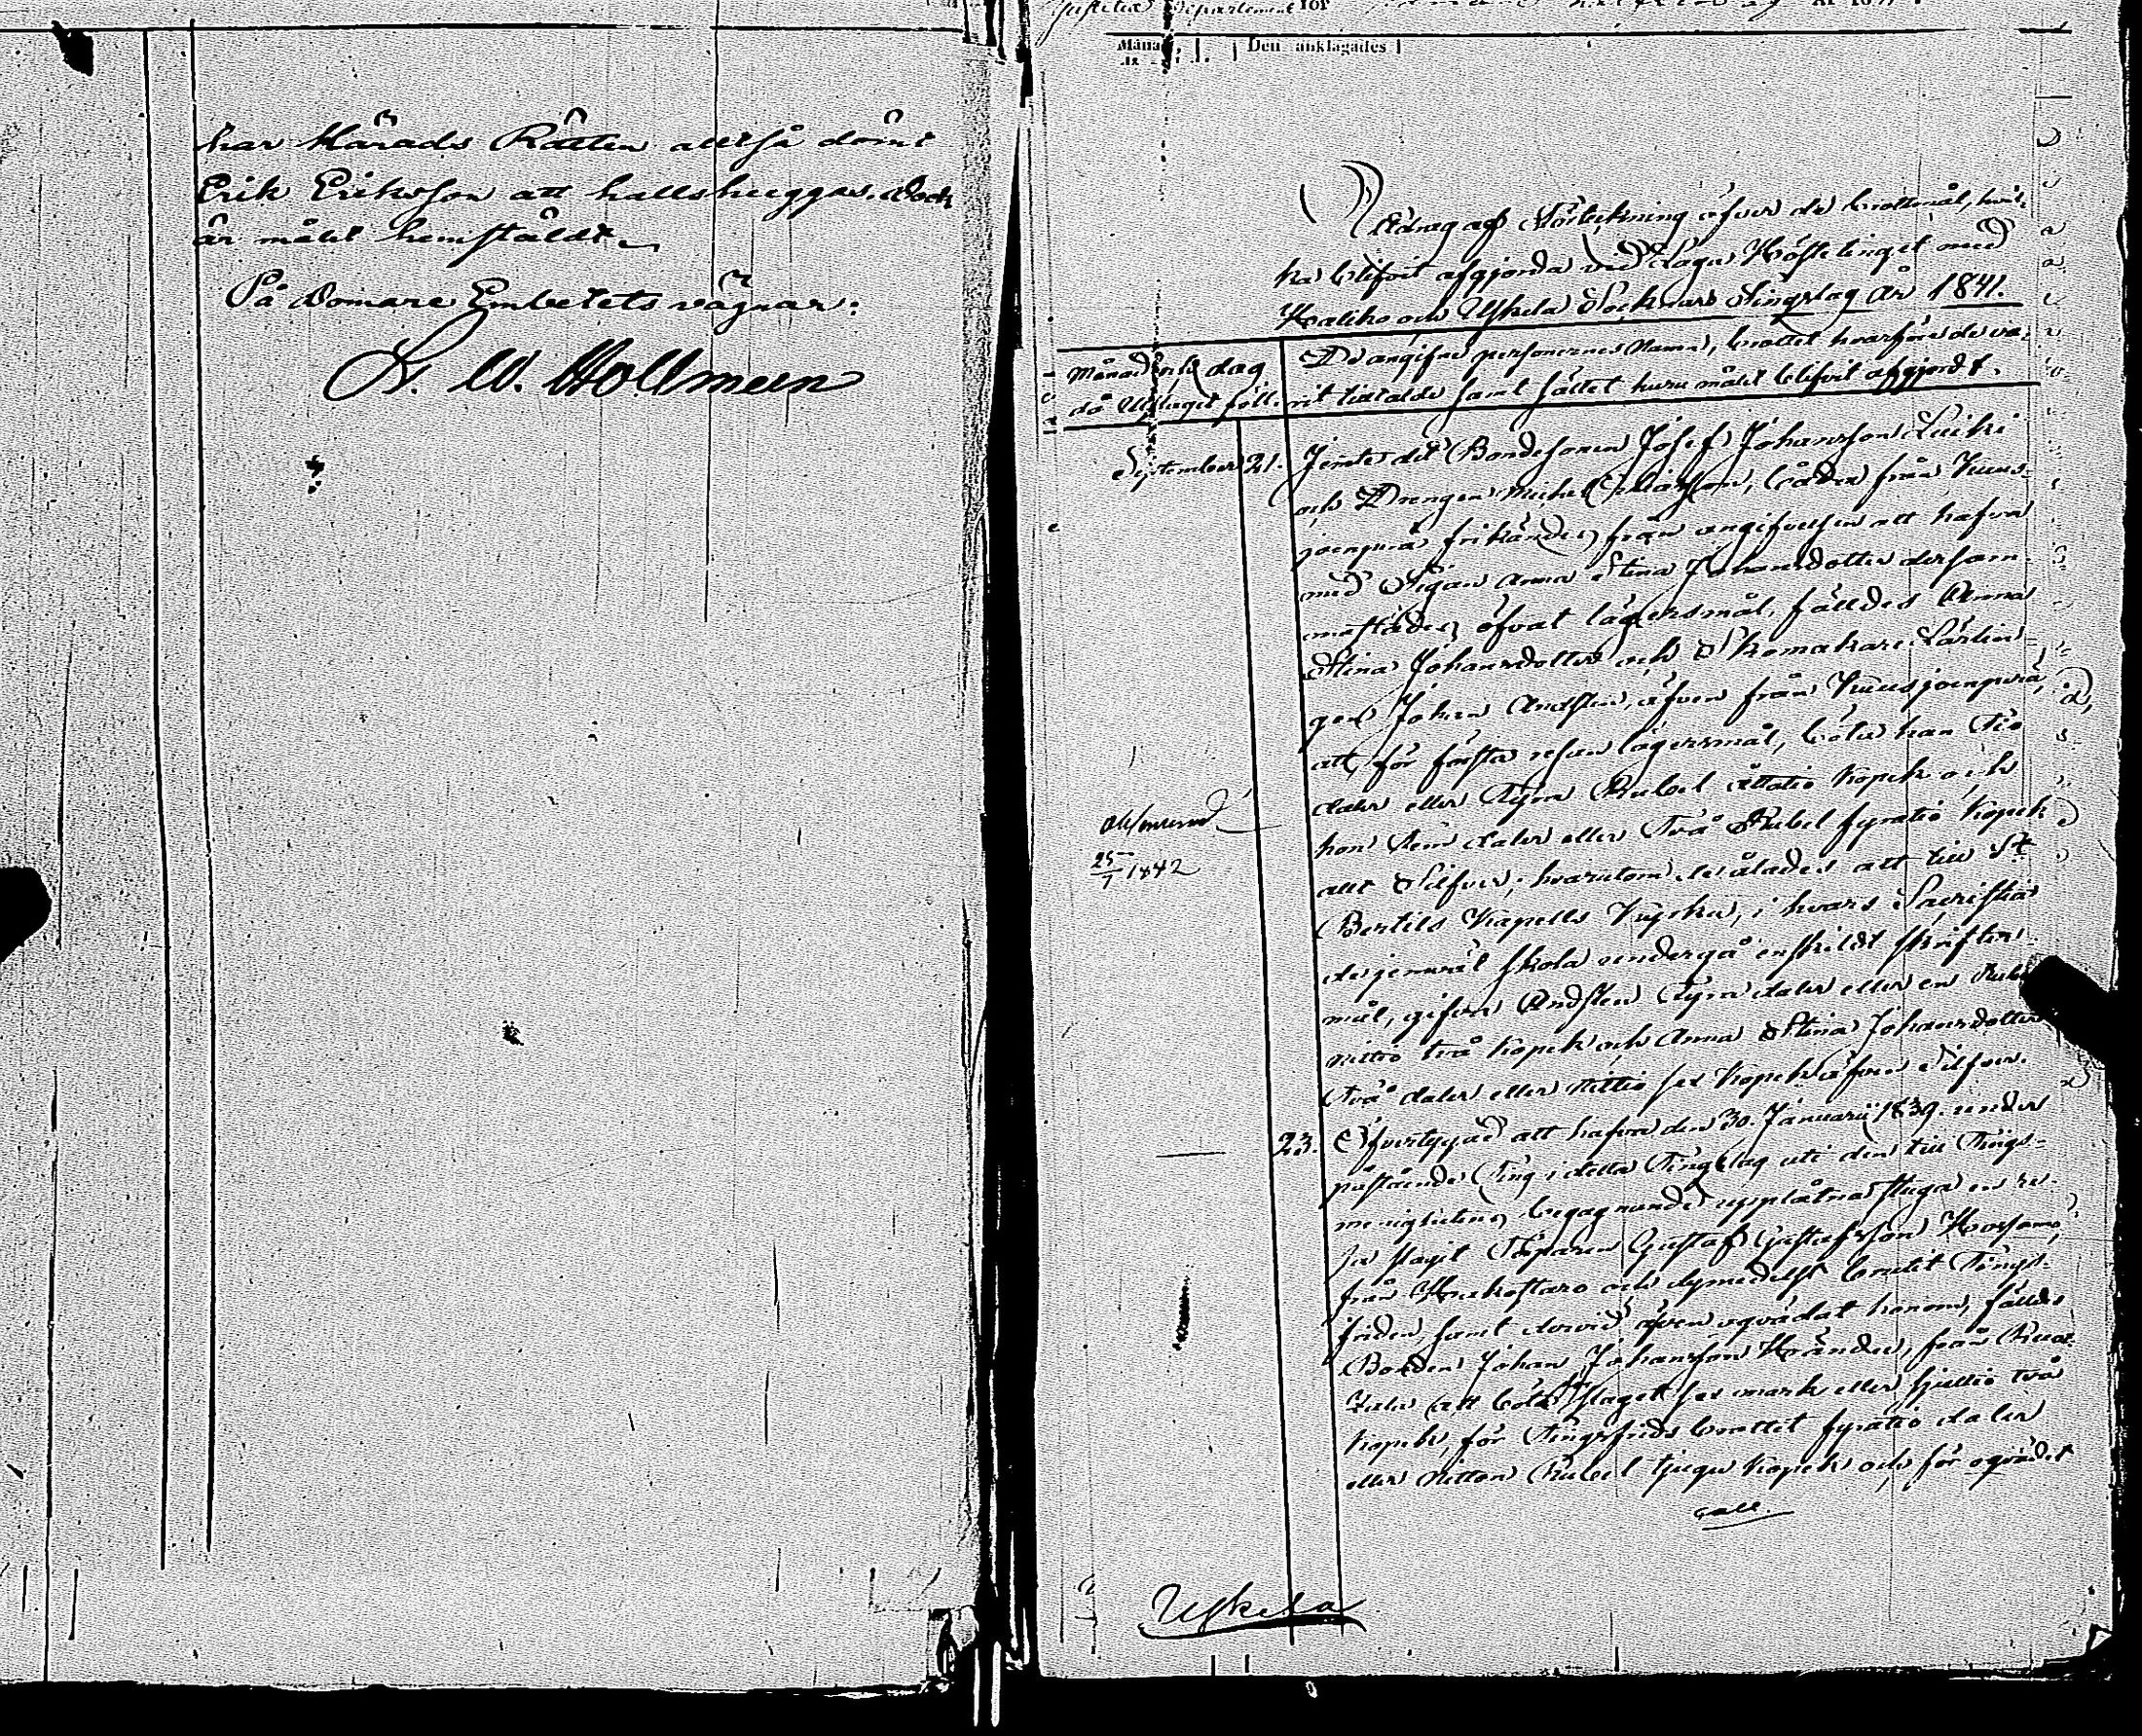 har Härads Rätten altså dömt
Erik Eriksson att halshuggas. Dock
är målet hemstäldt.
På Domare Embetets vägnar:
W. Hollmeen
Justitiæ Departement för
Månad,
Den anklagades
Utdrag af Förteckning öfver de brottmål, hvil-
ka blifvit afgjorda vid Laga Höstetinget med
Haliko och Uskela Socknars Tingslag År 1841.
Månad och dag
då Utslaget föll.
De angifne personernes Namn, brottet hvarföre de va-
rit tilltalde samt sättet huru målet blifvit afgjordt.
September 21.
Jemte det Bondesonen Josef Johansson
och Drengen Michel, båda från Kuus-
joenperä frikändes från angifvelsen att hafva
med Pigan Anna Stina Johansdotter dersam-
mastädes öfvat lägersmål, fälldes Anna
Stina Johansdotter och Skomakare Lärlin-
gen Johan Andsten, äfven från Kuusjoenperä,
att, för första resan lägersmål, böta han Tio
daler eller Fyra Rubel åttatio Kopek och
hon Fem daler eller Två Rubel fyratio Kopek
allt Silfver; hvarutom de ålades att till St
Bertils Kapells Kyrka, i hvars Sacristia
de jemväl skola undergå enskildt skrifter-
mål, gifva Andsten Fyra daler eller en Rubel
nittio två Kopek och Anna Stina Johansdotter
Två daler eller nittio sex Kopek äfven Silfver.
Afsomnad
25/7 1842
23.
Öfvertygad att hafva den 30. Januarii 1839. under
påstående Ting i detta Tingslag uti den till Tings-
menighetens begagnande upplåtna stuga en re-
sa slagit Torparen Gustaf Gustafsson
från och dymedelst brutit Tings-
friden, samt dervid även oqvädat honom, fälldes
Bonden Johan Johansson, från
att böta för slaget sex mark eller sjuttio två
Kopek, för Tingsfrids brottet fyratio daler
eller nitton Rubel tjugu Kopek och för oqvädet
Uskela